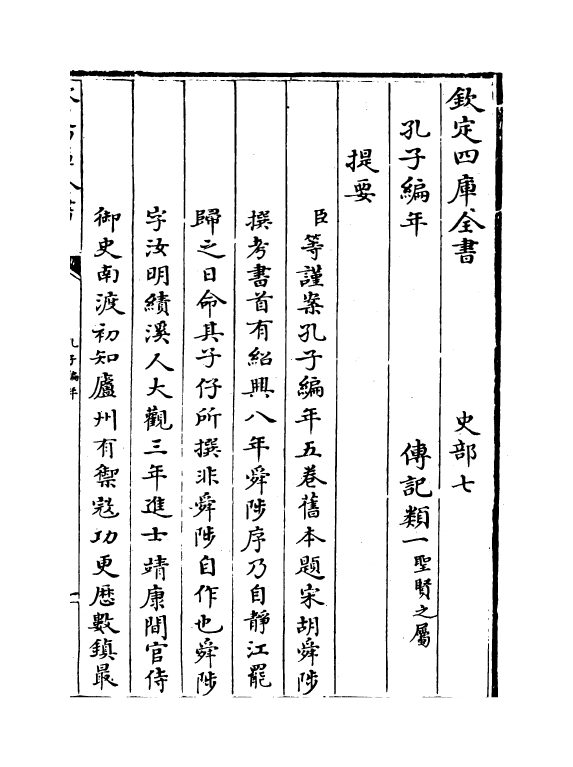 欽定四庫全書　史部七
孔子編年　傳記類一聖賢之屬
提要
臣等謹案孔子編年五巻舊本題宋胡舜陟
撰考書首有紹興八年舜陟序乃自靜江罷
歸之日命其子仔所撰非舜陟自作也舜陟
字汝明績溪人大觀三年進士靖康間官侍
御史南渡初知廬州有禦寇功更歴數鎮最
孔子編年